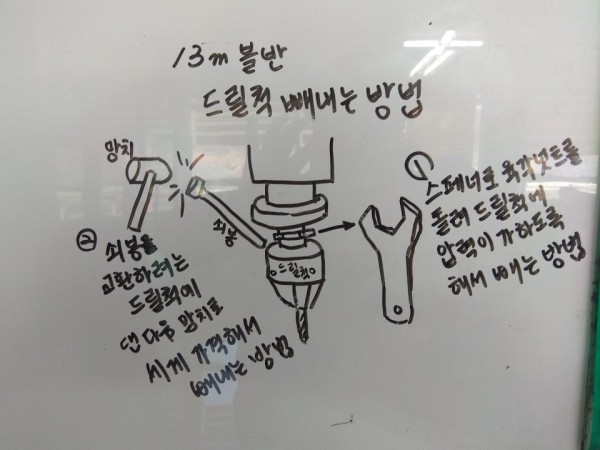 13m 볼반
드릴척 빼내는 방법
망치
쇠봉
드릴척
① 스페너로 육각넛트를
돌려 드릴척에
압력이 가하도록
해서 빼는 방법
② 쇠봉을
교환하려는
드릴척에
댄 다음 망치로
세게 가격해서
빼내는 방법